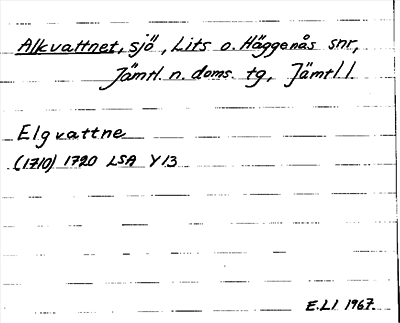 Alkvattnet, sjö, Lits o. Häggenås snr,
Jämtl. n. doms. tg, Jämtl l.
Elgvattne
(1710) 1720 LSA Y13
E.Ll 1967.